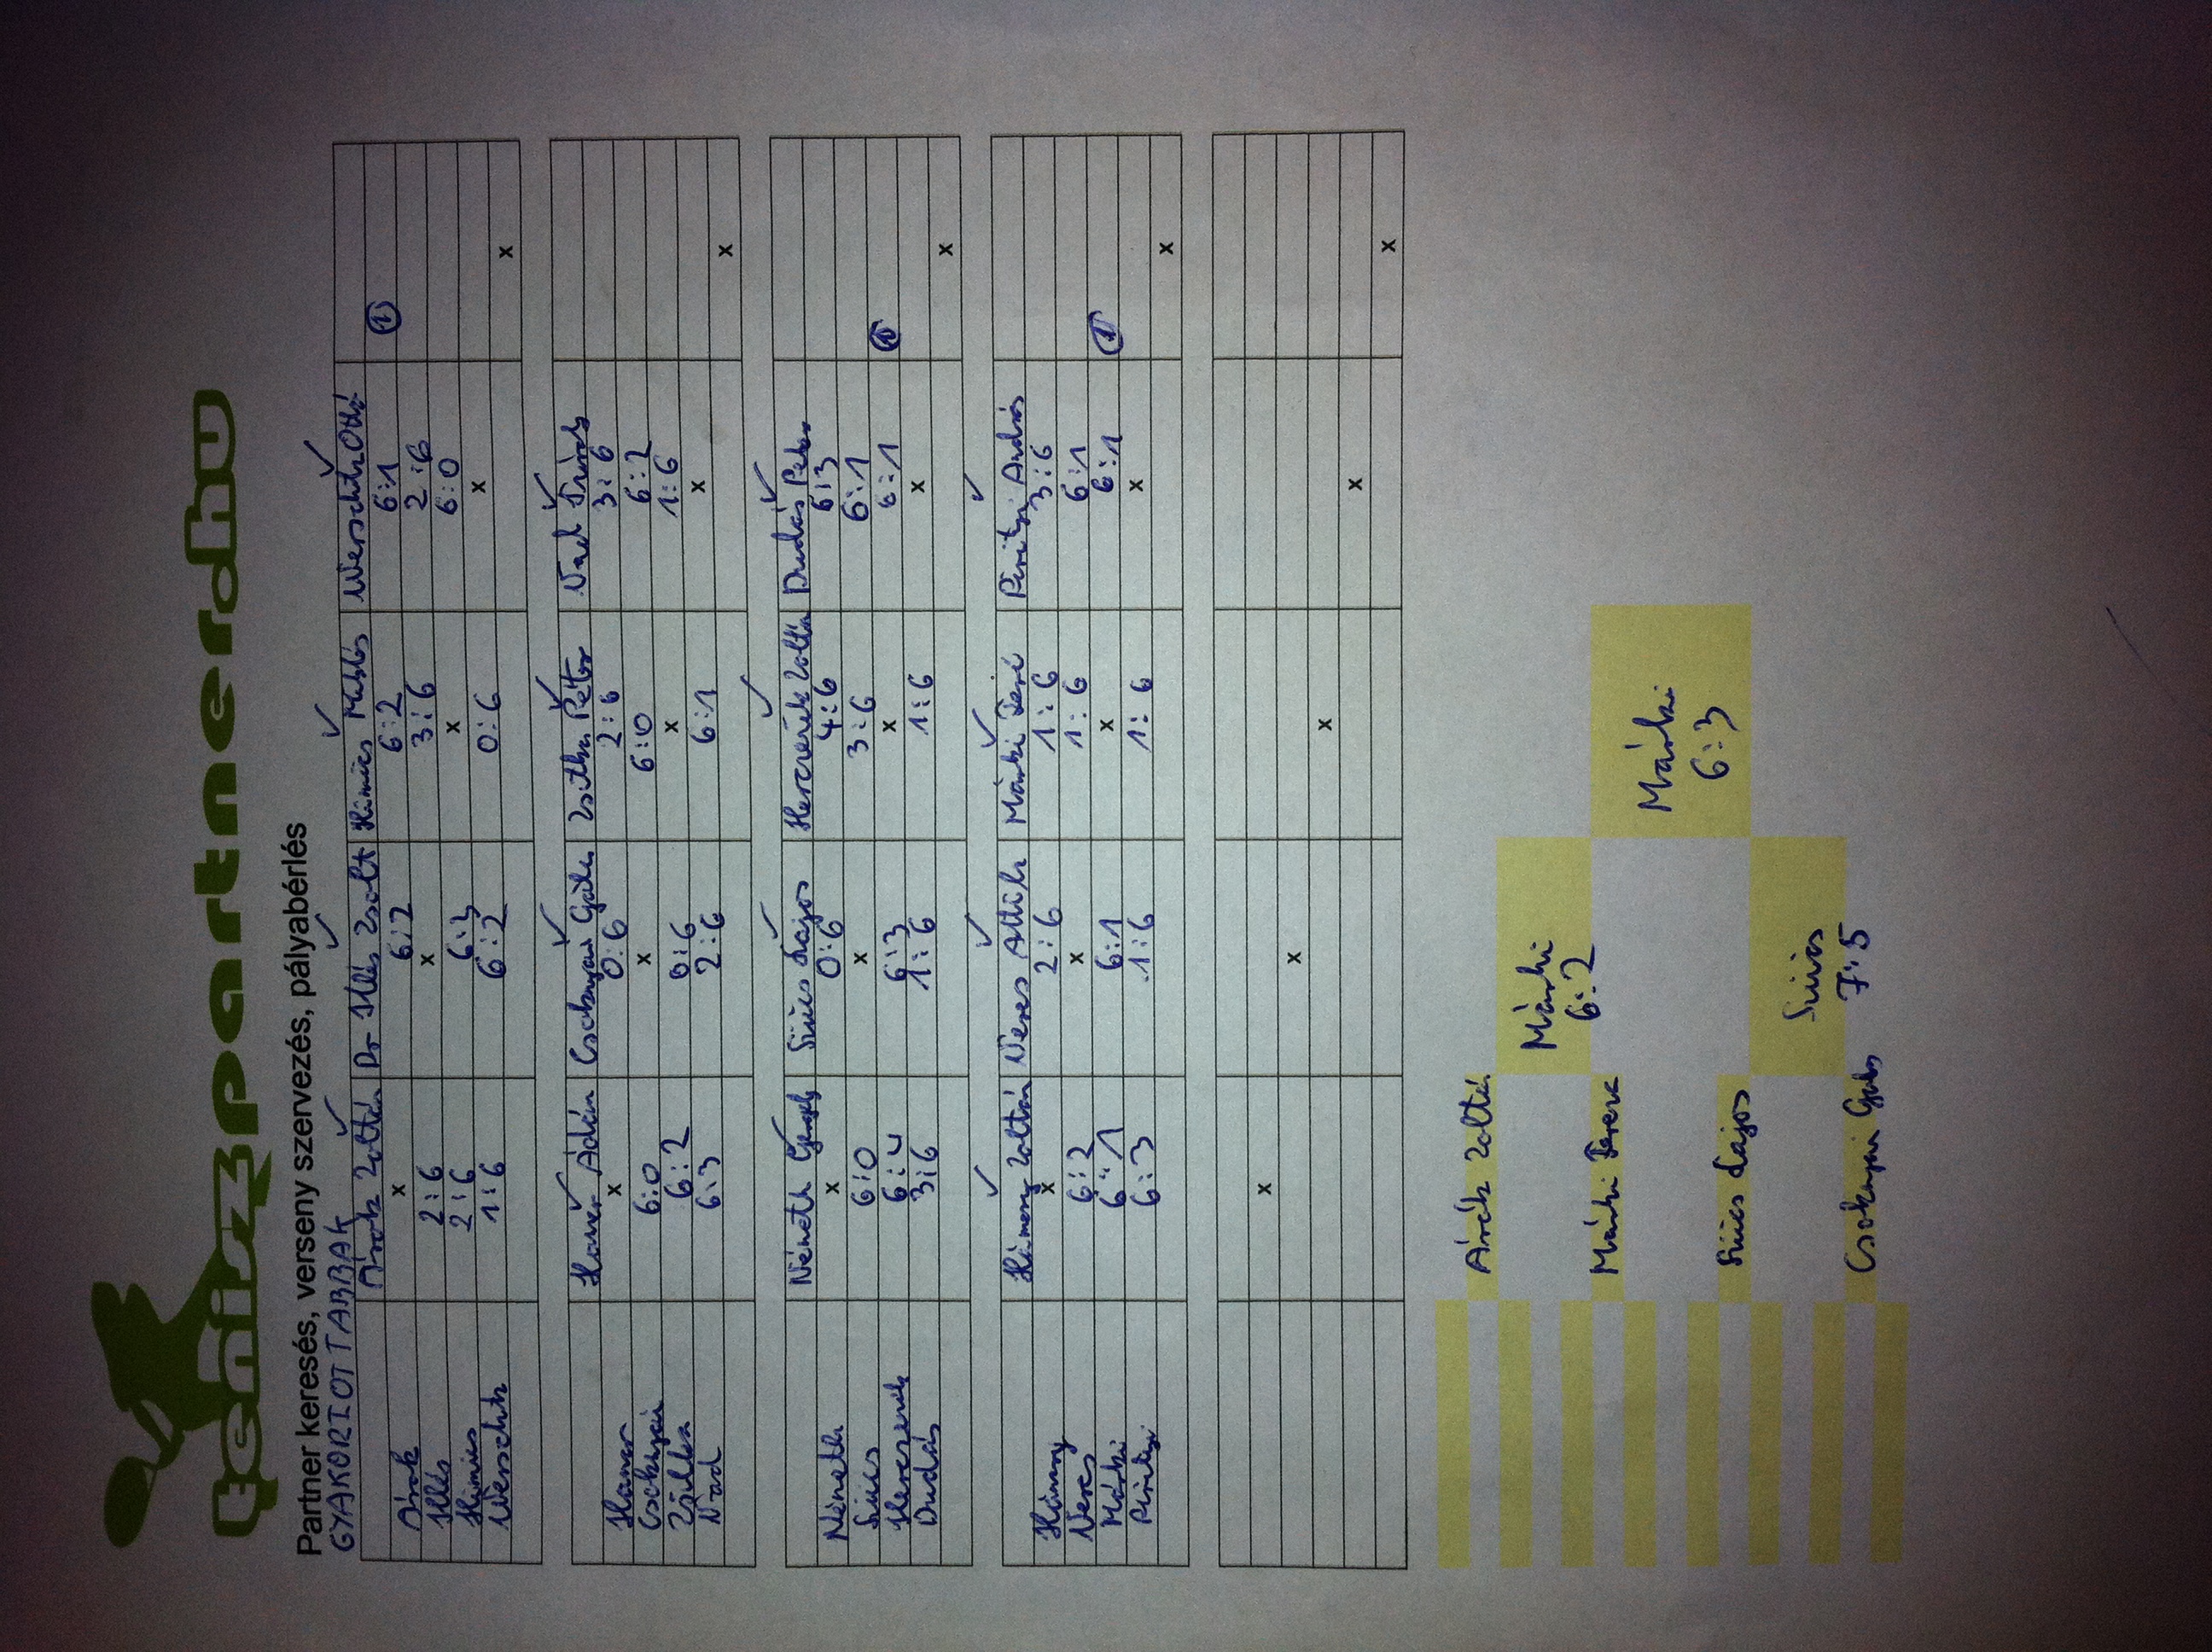 tenisz partner.hu
Partner keresés, verseny szervezés, pályabérlés
GYAKORIOTTABBAK
Árok Zoltán Dr Illés Zsolt Hímics Miklós Werschtz Ottó
Árok x 6:2 6:2 6:1 1
Illés 2:6 x 3:6 2:6
2:6 6:3 x 6:0
Werschtz 1:6 6:2 0:6 x
x
Ádám Csokonyai Zsitka Péter
x 0:6 2:6 3:6
6:0 x 6:0 6:2
Zsitka 6:2 0:6 x 1:6
6:3 2:6 6:1 x
x
Németh Szűcs Lajos Zoltán Dudás Péter
Németh x 0:6 4:6 6:3
Szűcs 6:0 x 3:6 6:1
6:4 6:3 x 6:1
Dudás 3:6 1:6 1:6 x
x
Zoltán Veres Attila Márki Feri András
x 2:6 1:6 3:6
Veres 6:2 x 1:6 6:1
Márki 6:1 6:1 x 6:1 1
6:3 1:6 1:6 x
x
x
x
x
x
x
Árok Zoltán
Márki
6:2
Márki Ferenc
Márki
6:3
Szűcs Lajos
Szűcs
7:5
Csokonyai